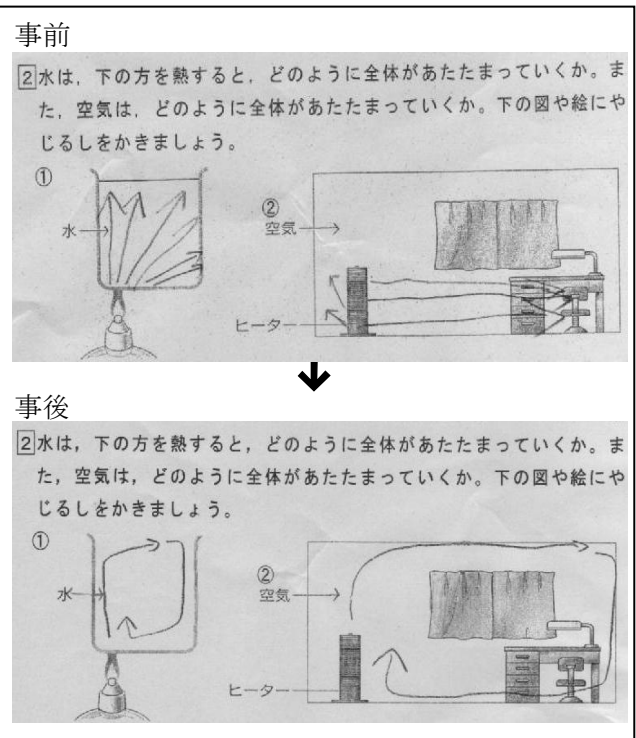 事前
2水は，下の方を熱すると，どのように全体があたたまっていくか。ま
た，空気は，どのように全体があたたまっていくか。下の図や絵にや
じるしをかきましょう。
①
水
②
空気
ヒーター
事後
2水は，下の方を熱すると，どのように全体があたたまっていくか。ま
た，空気は，どのように全体があたたまっていくか。下の図や絵にや
じるしをかきましょう。
①
水
②
空気
ヒーター